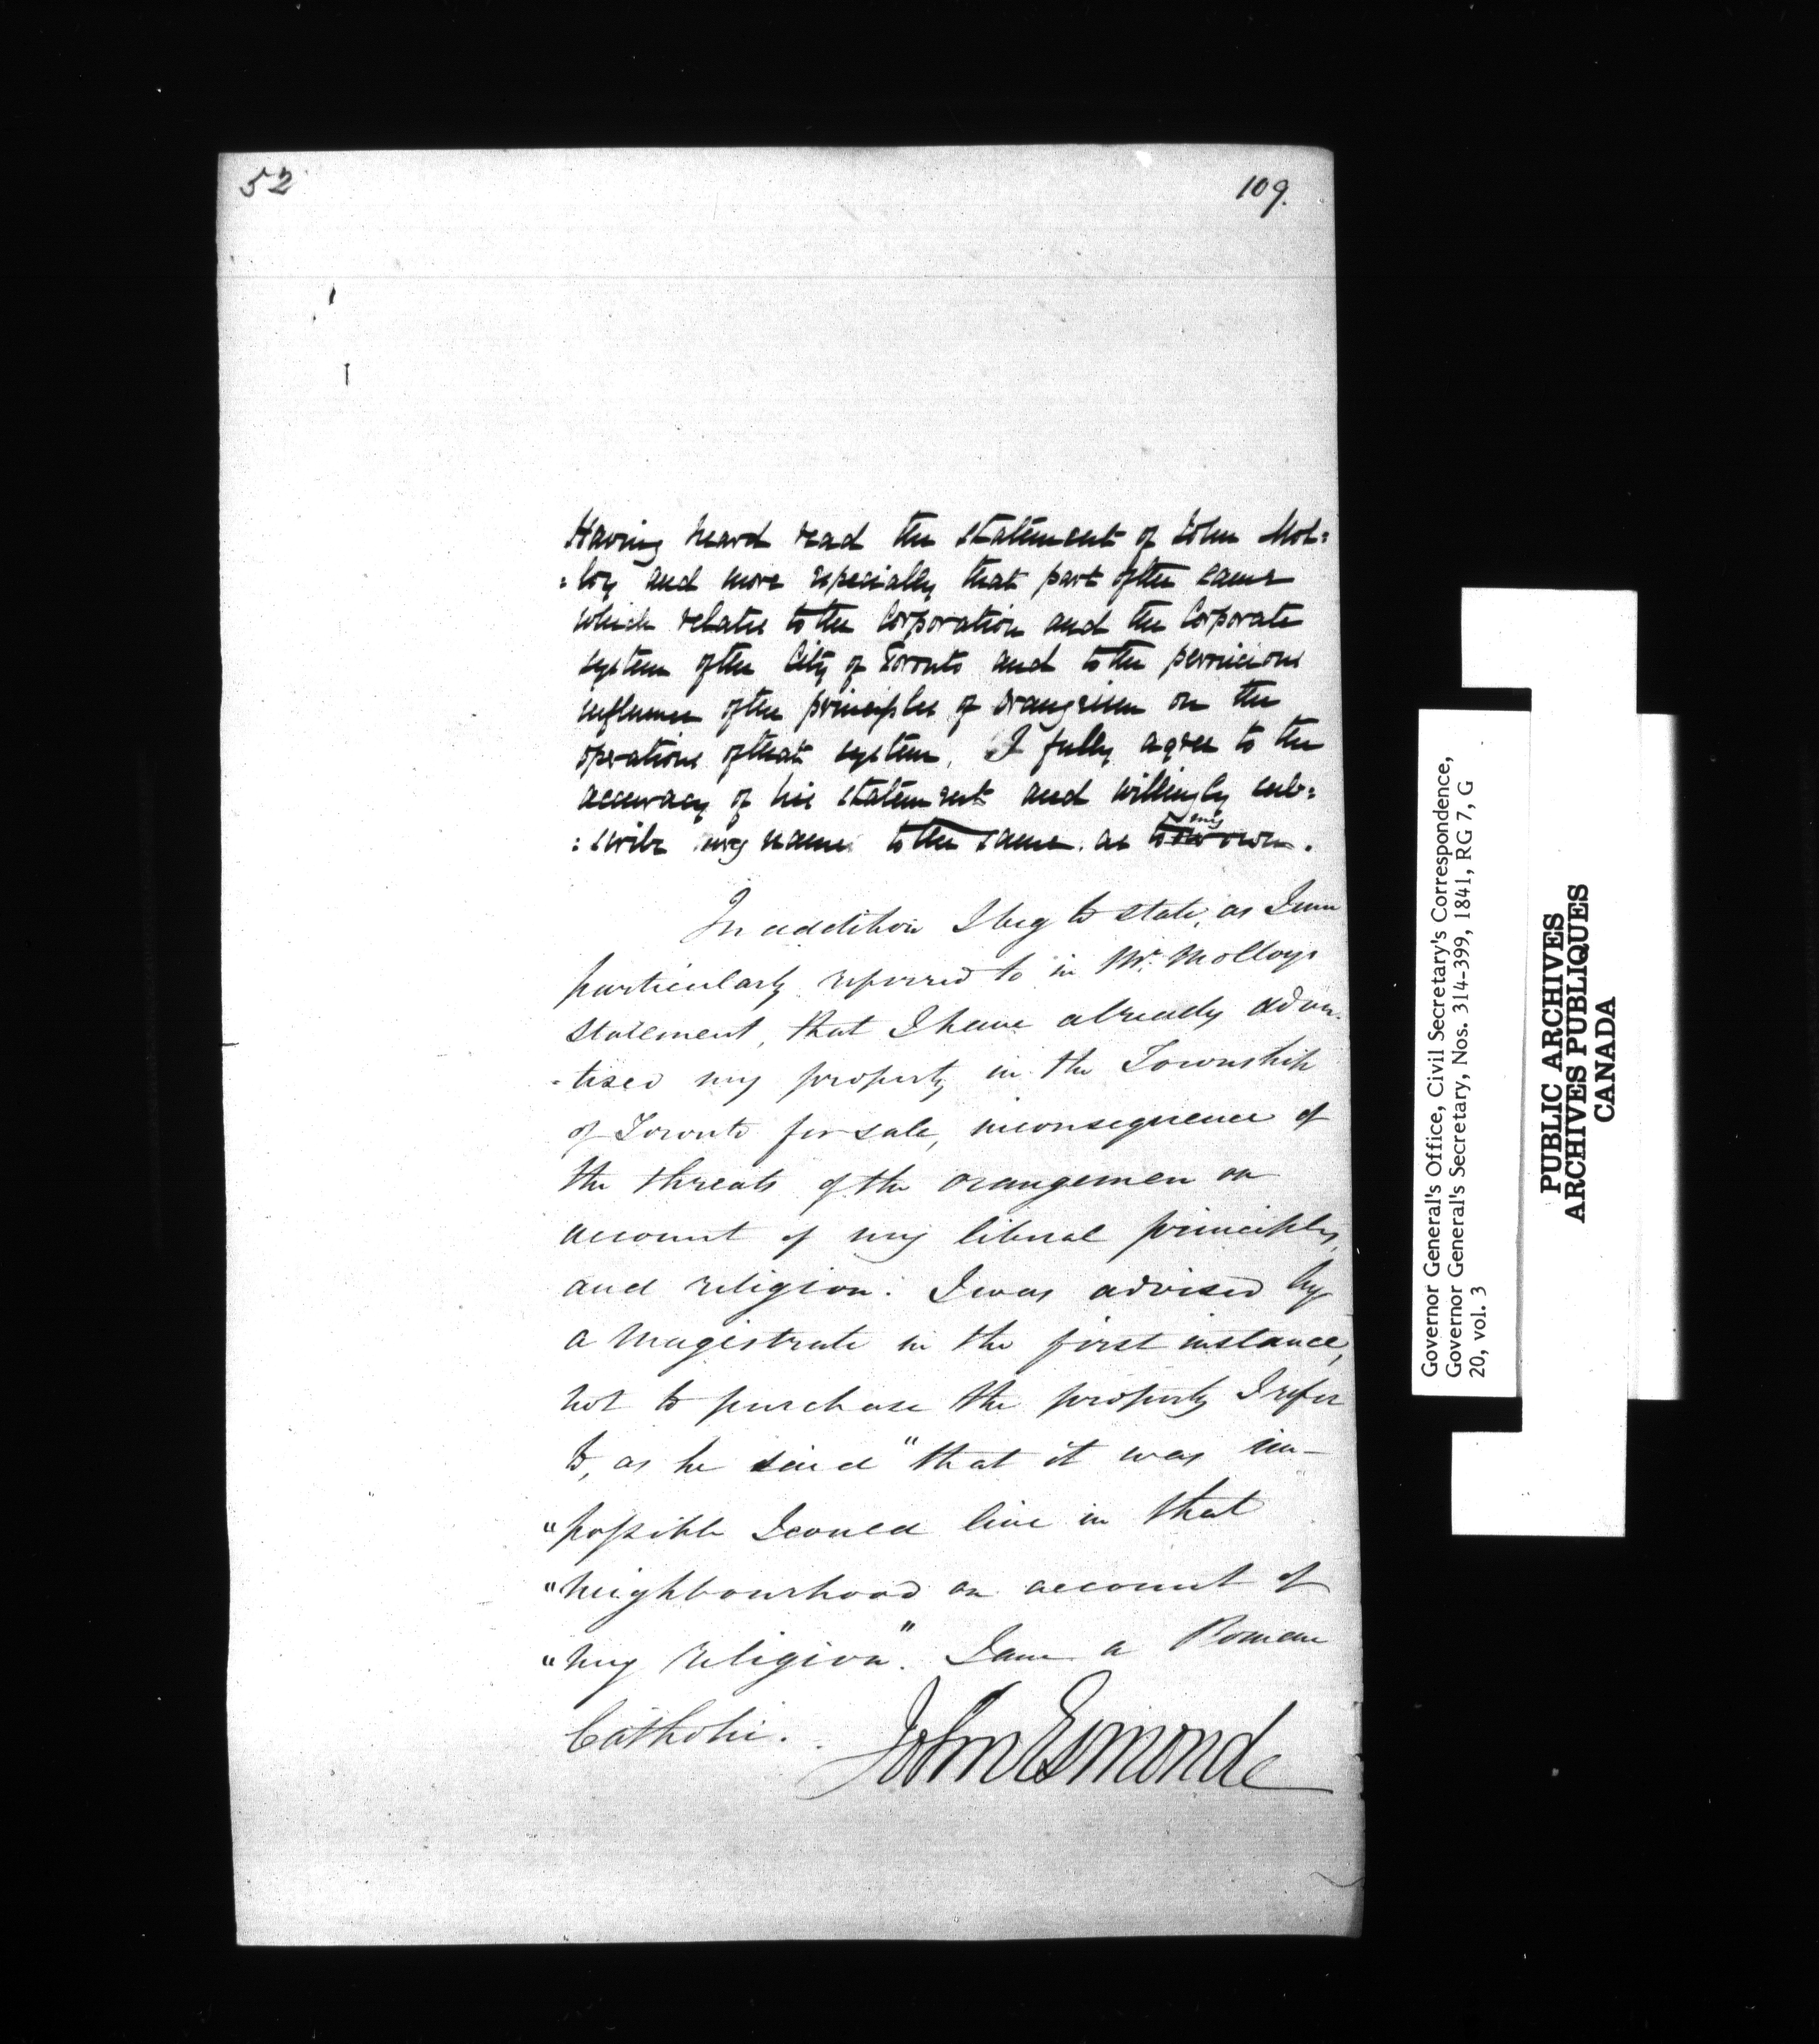 52
109.
Having heard read the statement of John Mol:
:loy and more especially that part of the same
which relates to the Corporation and the Corporate
system of the City of Toronto and to the pernicious
influence of the principles of orangeism on the
operations of that system, I fully agree to the
accuracy of his statement and willingly sub:
my
:scribe my name to the same as to own.
In addition I beg to state, as I am
particularly referred to in Mr. Molloys
statement, that I have already adver
-tised my property in the Township
of Toronto for sale, in consequence of
the threats of the orangemen on
account of my liberal principles,
and religion: I was advised by
a magistrate in the first instance,
not to purchase the property I refer
to, as he said "that it was im-
"possible I could live in that
"neighbourhood on account of
"my religion". I am a Roman
Catholic.
John Esmonde
Governor General's Office, Civil Secretary's Correspondence,
Governor General's Secretary, Nos. 314-399, 1841, RG 7, G
20, vol. 3
PUBLIC ARCHIVES
ARCHIVES PUBLIQUES
CANADA